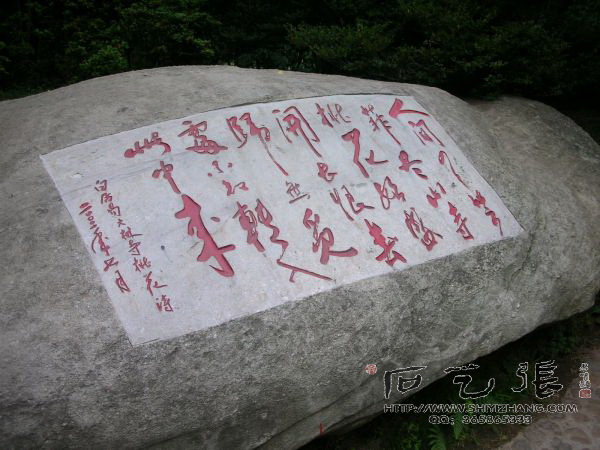 人间四月芳
菲尽山寺
桃花始盛
開長恨春
歸无覓
處不知轉入
此中来
白居易大林寺桃花诗
年七月
石艺張
HTTP://WWW.SHIYIZHANG.COM
QQ: 365865333